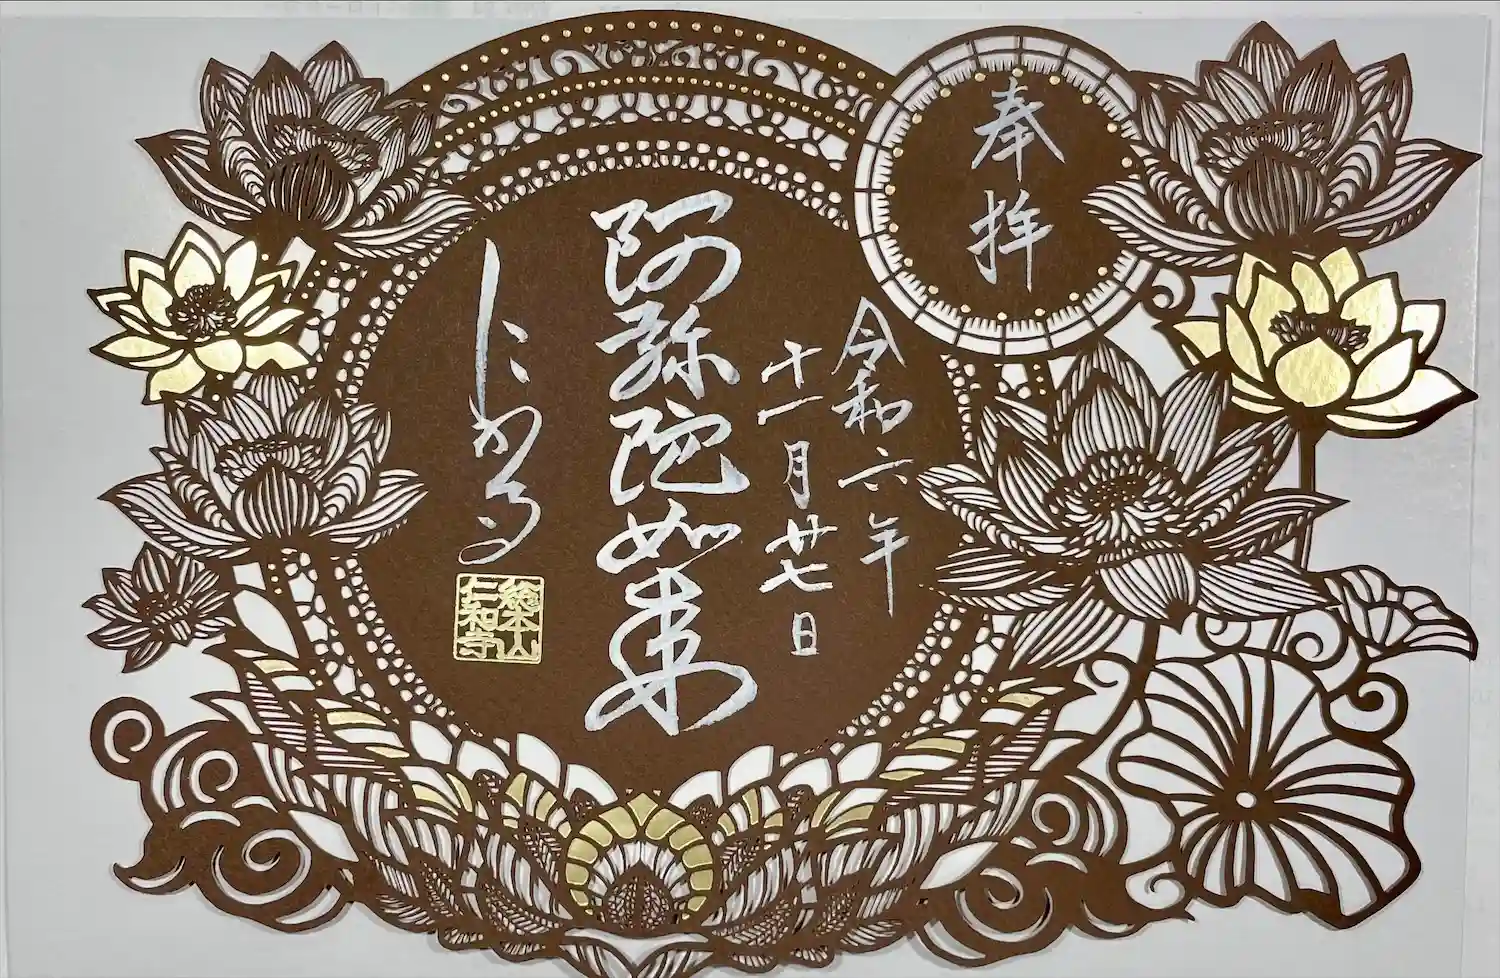 奉拝
令和六年
十一月廿七日
阿弥陀如来
にわか寺
総本山
仁和寺